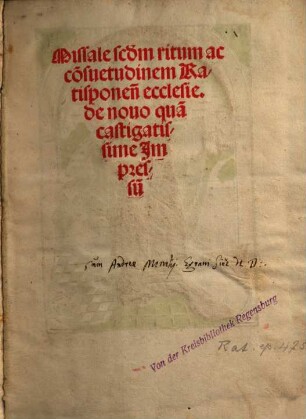 Missale scd̄m ritum ac
cōsuetudinem Ra-
tisponeñ ecclesie.
de nouo quā
castigatis-
sime Im
pres-
sū
Andreæ
Von der Kreisbibliothek Regensburg
Rat. ep. 425